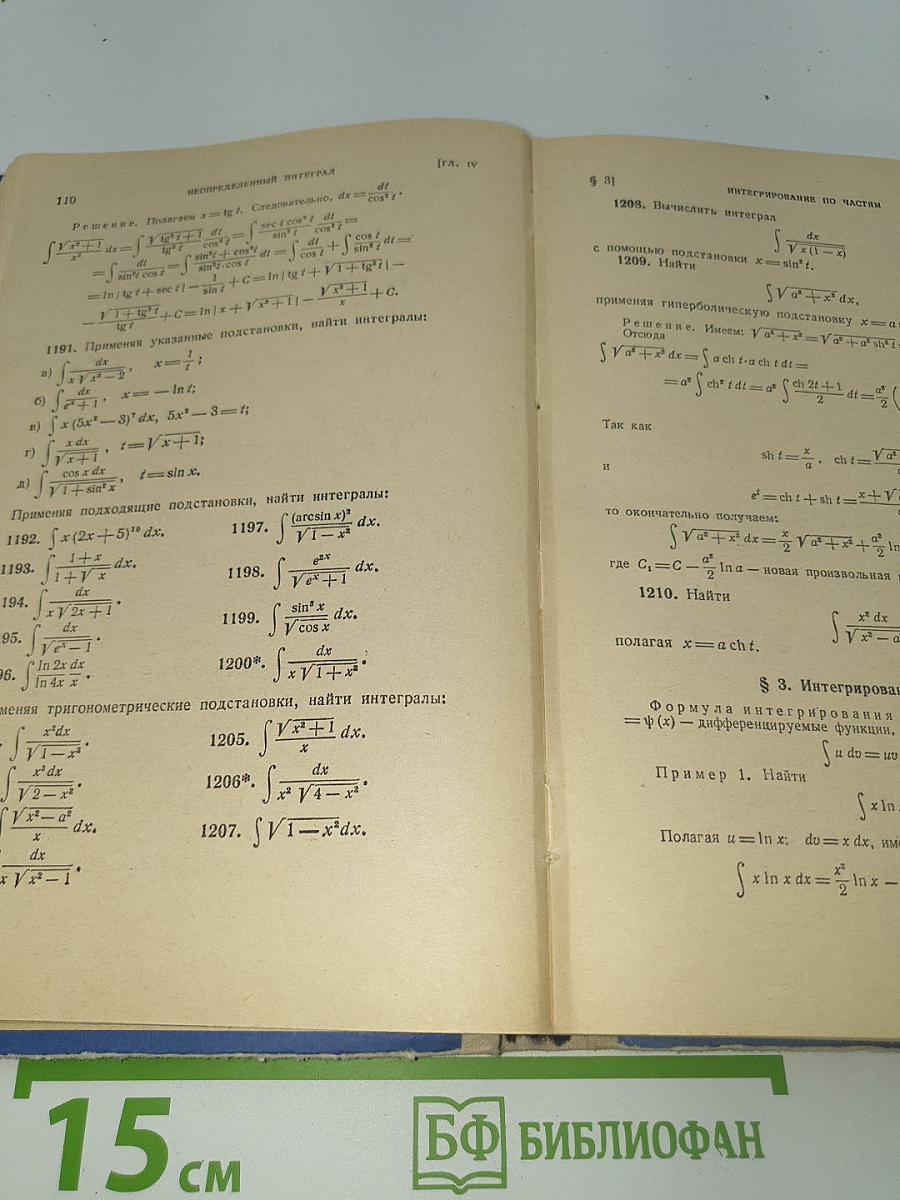 110
НЕОПРЕДЕЛЕННЫЙ ИНТЕГРАЛ
[ГЛ. IV
Решение. Полагаем x = tg t. Следовательно, dx = dt/cos² t.
∫ √(x²+1)/x² dx = ∫ √(tg² t+1)/tg² t · dt/cos² t = ∫ sec t cos² t/sin² t · dt/cos² t =
= ∫ dt/(sin² t cos t) = ∫ (sin² t + cos² t)/(sin² t · cos t) dt = ∫ dt/cos t + ∫ cos t/sin² t dt =
= ln | tg t + sec t | − 1/sin t + C = ln | tg t + √(1 + tg² t) | −
− √(1 + tg² t)/tg t + C = ln | x + √(x² + 1) | − √(x² + 1)/x + C.
1191. Применяя указанные подстановки, найти интегралы:
а) ∫ dx/(x √(x² − 2)), x = 1/t;
б) ∫ dx/(eˣ + 1), x = − ln t;
в) ∫ x (5x² − 3)⁷ dx, 5x² − 3 = t;
г) ∫ x dx/√(x + 1), t = √(x + 1);
д) ∫ cos x dx/√(1 + sin² x), t = sin x.
Применяя подходящие подстановки, найти интегралы:
1192. ∫ x (2x + 5)¹⁰ dx.
1193. ∫ (1 + x)/(1 + √x) dx.
194. ∫ dx/(x √(2x + 1)).
95. ∫ dx/√(eˣ − 1).
96. ∫ ln 2x/ln 4x dx/x.
1197. ∫ (arcsin x)²/√(1 − x²) dx.
1198. ∫ e²ˣ/√(eˣ + 1) dx.
1199. ∫ sin³ x/√(cos x) dx.
1200*. ∫ dx/(x √(1 + x²)).
меняя тригонометрические подстановки, найти интегралы:
∫ x² dx/√(1 − x²).
∫ x³ dx/√(2 − x²).
∫ √(x² − a²)/x dx.
dx/(x √(x² − 1)).
1205. ∫ √(x² + 1)/x dx.
1206*. ∫ dx/(x² √(4 − x²)).
1207. ∫ √(1 − x²) dx.
§ 3]
ИНТЕГРИРОВАНИЕ ПО ЧАСТЯМ
1208. Вычислить интеграл
∫ dx/√(x (1 − x))
с помощью подстановки x = sin² t.
1209. Найти
∫ √(a² + x²) dx,
применяя гиперболическую подстановку x = a
Решение. Имеем: √(a² + x²) = √(a² + a² sh² t
Отсюда
∫ √(a² + x²) dx = ∫ a ch t · a ch t dt =
= a² ∫ ch² t dt = a² ∫ (ch 2t + 1)/2 dt = a²/2 (
Так как
sh t = x/a, ch t = √(a²
и
eᵗ = ch t + sh t = x + √
то окончательно получаем:
∫ √(a² + x²) dx = x/2 √(a² + x²) + a²/2 ln
где C₁ = C − a²/2 ln a — новая произвольная
1210. Найти
∫ x² dx/√(x² − a
полагая x = a ch t.
§ 3. Интегрирова
Формула интегрирования
= ψ (x) — дифференцируемые функции,
∫ u dv = uv
Пример 1. Найти
∫ x ln
Полагая u = ln x; dv = x dx, им
∫ x ln x dx = x²/2 ln x −
15 см
БФ БИБЛИОФАН